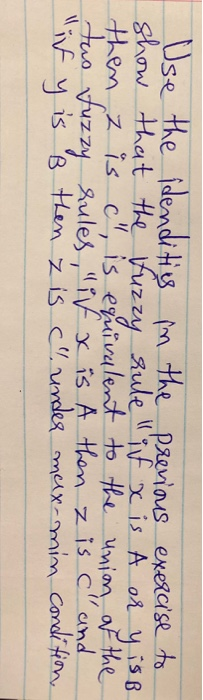 Use the idendities in the previous exercise to
show that the fuzzy rule "if x is A or y is B
then z is C", is equivalent to the union of the
two fuzzy rules, "if x is A then z is C" and
"if y is B then z is C". under max-min condition.